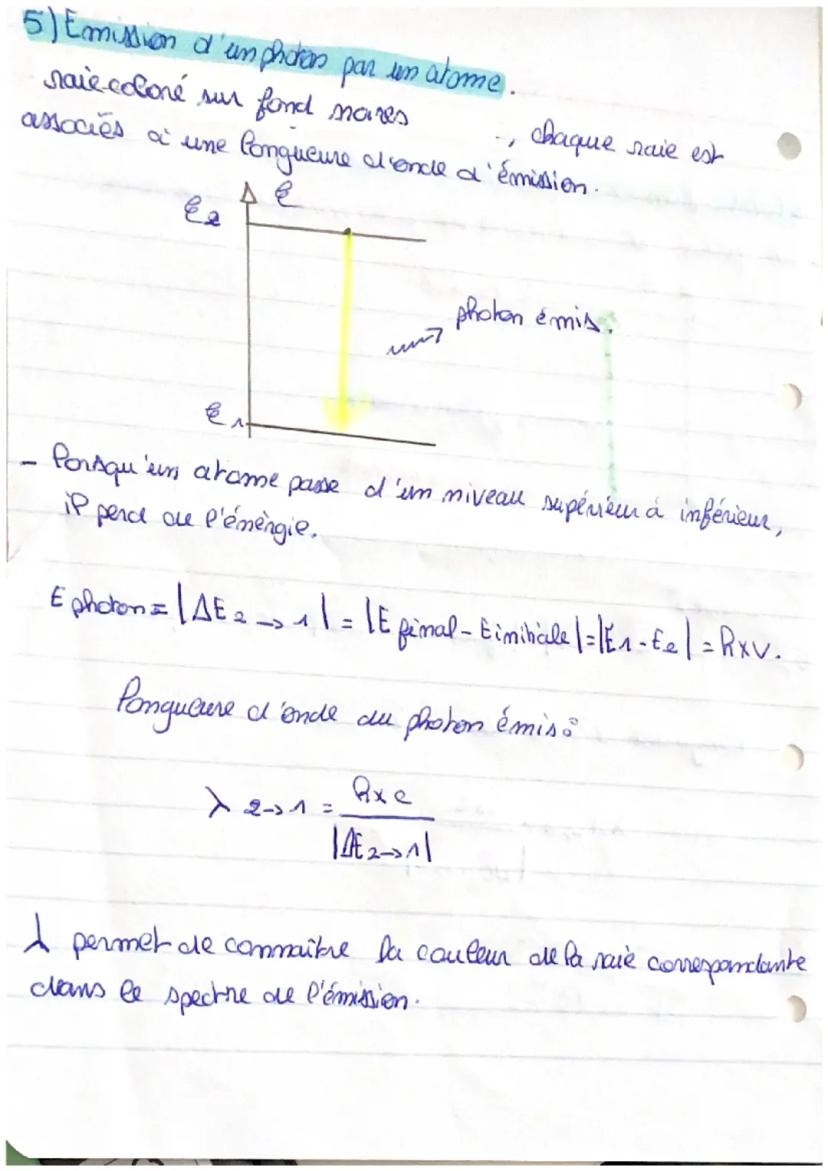 5) Emission d'un photon par un atome.
raie coloré sur fond noires ., chaque raie est
associés à une longueure d'onde d'émission.
E
E2
photon émis.
E1
- lorsqu'un atome passe d'un niveau supérieur à inférieur,
il perd de l'énèrgie.
E photon = |ΔE 2 → 1| = |E final - E initiale| = |E1 - E2| = h x ν.
longueure d'onde du photon émis :
λ 2→1 = h x c
|ΔE 2→1|
λ permet de connaître la couleur de la raie correspondante
dans le spectre de l'émission.